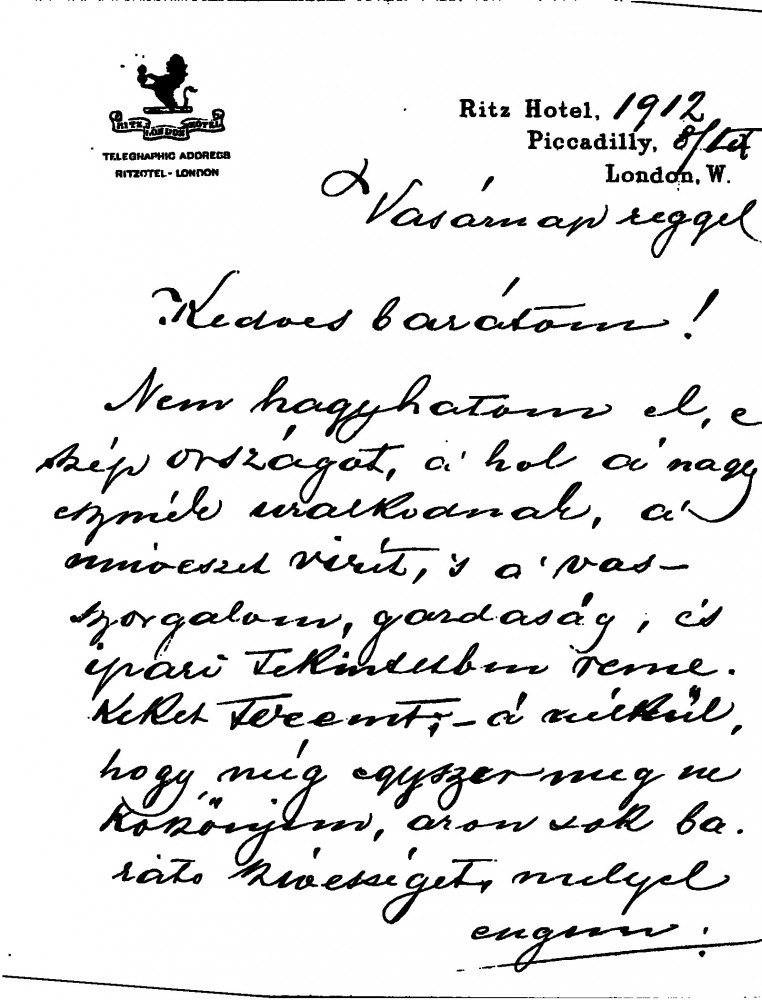 RITZ HOTEL
LONDON
TELEGRAPHIC ADDRESS
RITZOTEL - LONDON
Ritz Hotel, 1912
Piccadilly,
London, W.
Vasárnap reggel
Kedves barátom!
Nem hagyhatom el, e
szép országot, á hol á nagy
eszmék uralkodnak, á
müvészet virit, 's á vas-
szorgalom, gazdaság, és
ipari tekintetben reme-
keket teremt; - á nélkül,
hogy, még egyszer meg ne
köszönjem, azon sok ba-
ráti szivességet, melyel
engem: